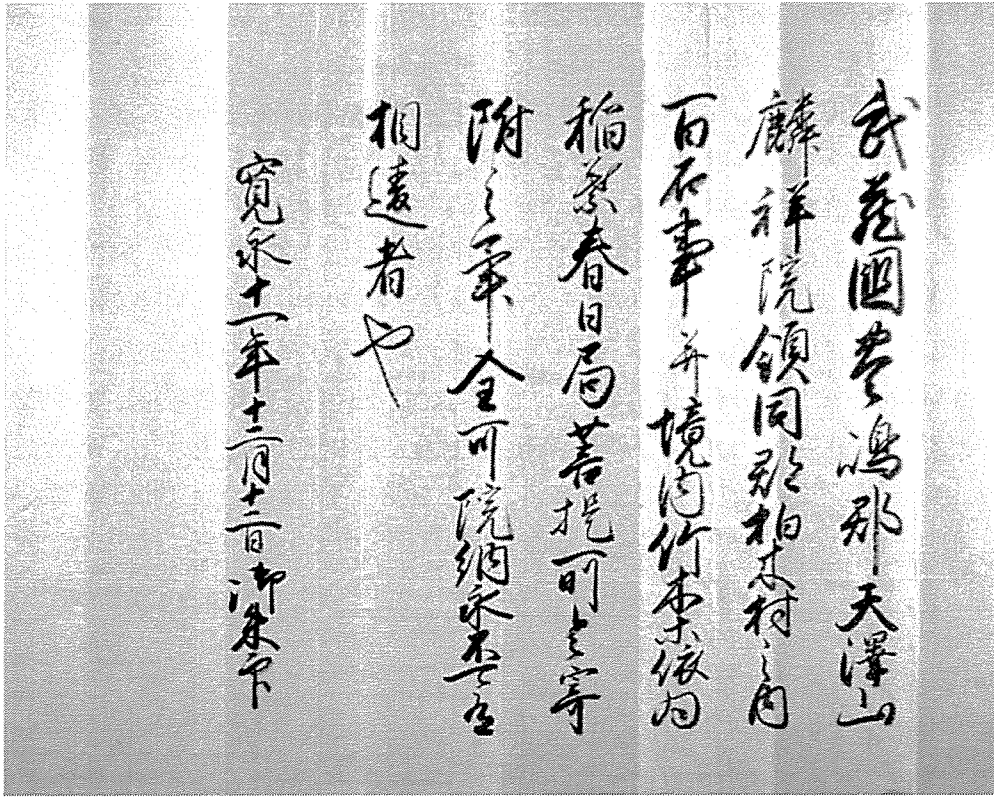 武蔵國豊嶋郡天澤山
麟祥院領同郡柏木村之内
百石事并境内竹木依為
稲葉春日局菩提所令寄
附之畢全可院納永不可有
相違者也
寛永十一年十二月十二日御朱印